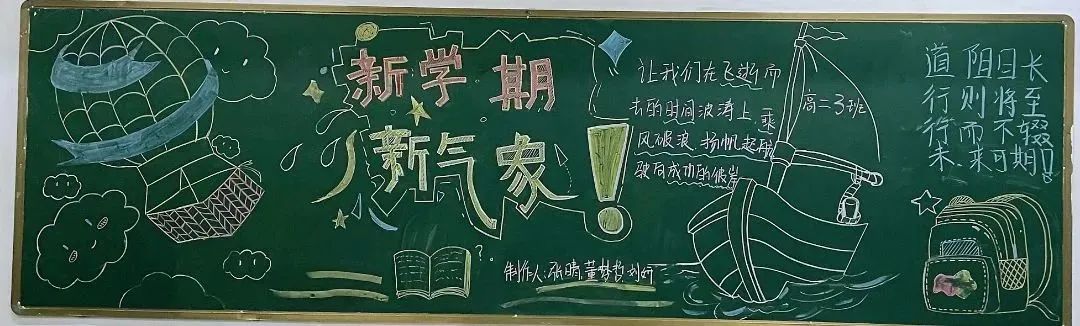 新学期
新气象!
让我们在飞逝而
去的时间波涛上,乘
风破浪、扬帆起航
驶向成功的彼岸
高二3班
道阻且长
行则将至
行而不辍
未来可期!
制作人:张晴董梦哲刘妍